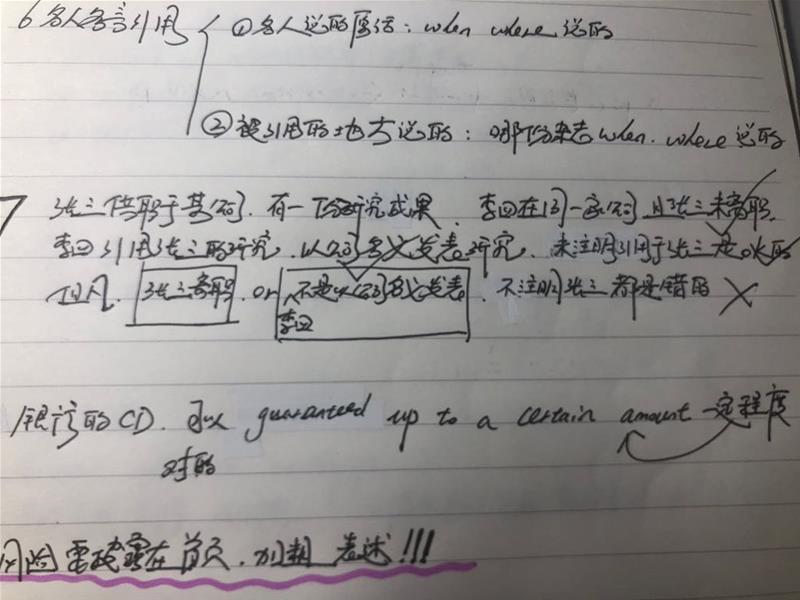 6 名人名言引用
① 名人说的原话：when where 说的
② 被引用的地方说的：哪份杂志 when. where 说的
7 张三供职于某公司. 有一份研究成果. 李四在同一家公司 且张三未离职.
李四引用张三的研究. 以公司名义发表研究. 未注明引用于张三是OK的 ✓
但凡. 张三离职 or 李四不是以公司名义发表. 不注明张三都是错的 ×
银行的 CD. 可以 guaranteed up to a certain amount 一定程度
对的
风险需披露在首页. 加粗 表述!!!